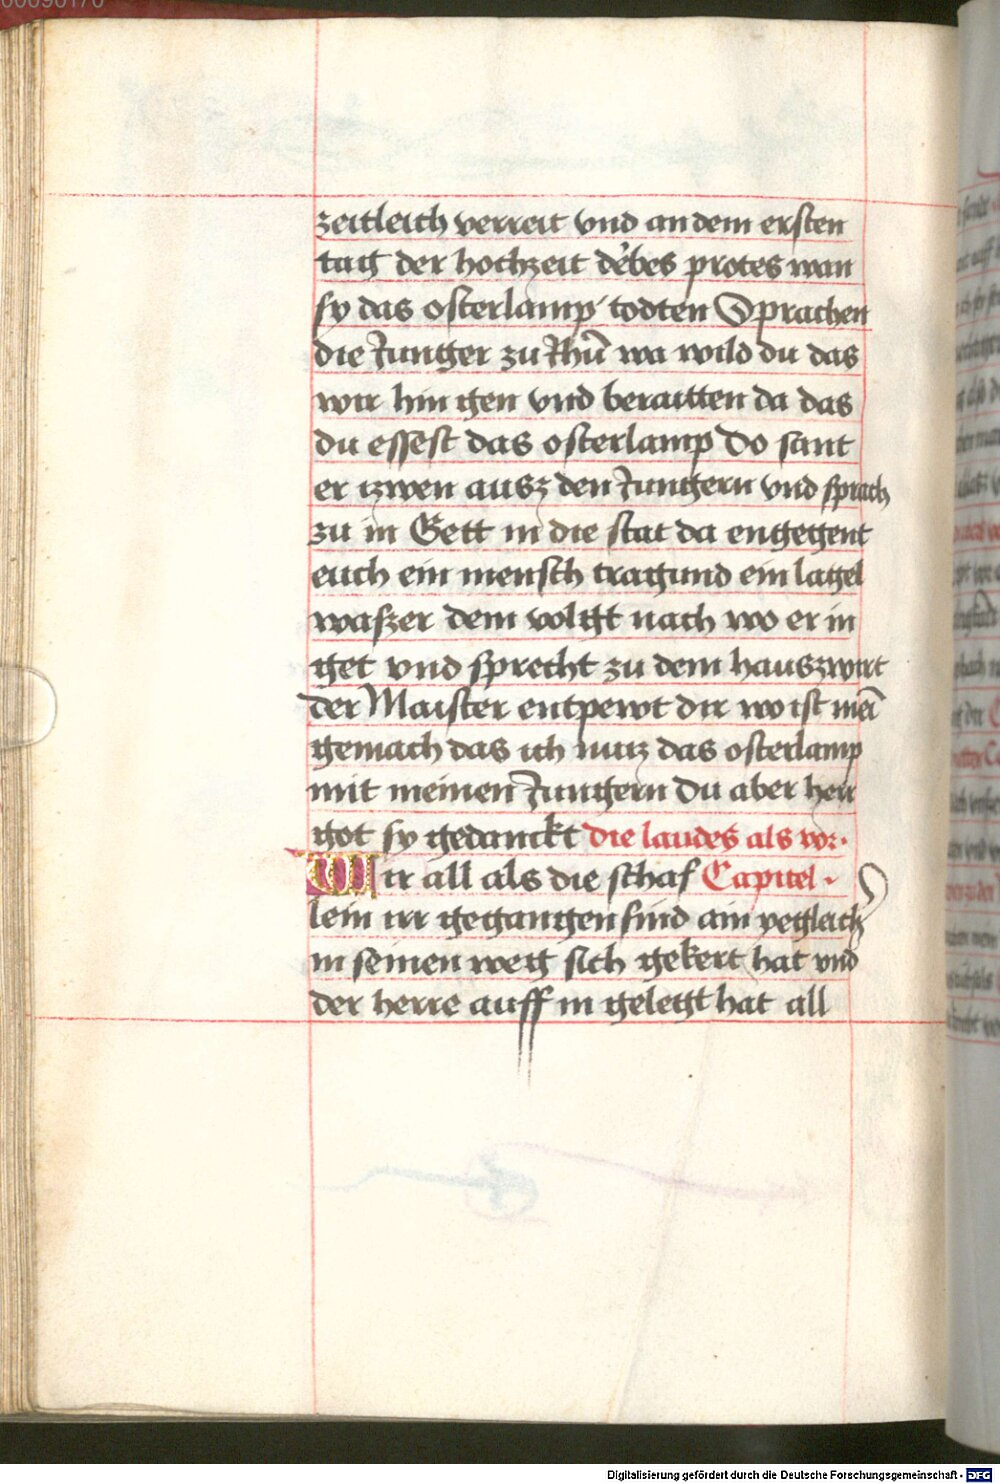 00090170
zeitleich verreit vnd an dem ersten
tag der hochzeit dēbes protes wan
sy das osterlamp todten Sprachen
die Junger zu Jhū wa wild du das
wir hin gen vnd beraitten da das
du essest das osterlamp Do sant
er zwen ausz den Jungern vnd sprach
zu in Gett in die stat da engegent
euch ein mensch tragund ein lagel
waszer dem volgt nach wo er in
get vnd sprecht zu dem hauszwirt
der Maister entpewt dir wo ist mei̅
gemach das ich nutz das osterlamp
mit meinen Jungern Du aber herr
got sy gedanckt die laudes als vor.
Wir all als die schaf Capitel.
lein irr gegangen sind ain yegleich
in seinen weg sich gekert hat vnd
der herre auff in gelegt hat all
Digitalisierung gefördert durch die Deutsche Forschungsgemeinschaft - DFG